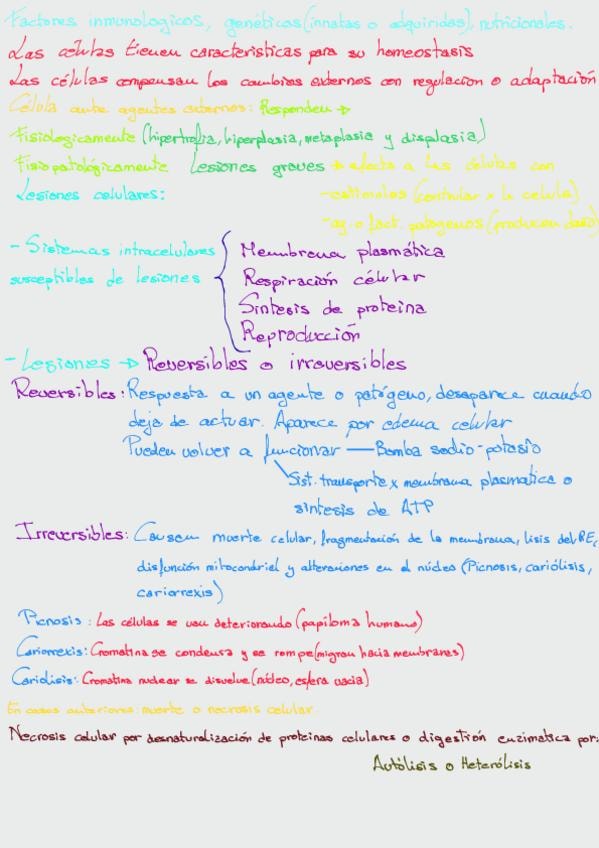 Factores inmunologicos, genéticas (innatas o adquiridas), nutricionales.
Las células tienen caracteristicas para su homeostasis
Las células compensan los cambios externos con regulacion o adaptación
Célula ante agentes externos: Responden →
Fisiologicamente (hipertrofia, hiperplasia, metaplasia y displasia)
Fisiopatológicamente Lesiones graves → afecta a las células con
Lesiones celulares: - estimulos (controlar x la celula)
- ag. o fact. patogenos (producen daño)
- Sistemas intracelulares susceptibles de lesiones
Membrana plasmática
Respiración célular
Sintesis de proteina
Reproducción
- Lesiones → Reversibles o irreversibles
Reversibles: Respuesta a un agente o patógeno, desaparece cuando
deja de actuar. Aparece por edema celular
Pueden volver a funcionar — Bomba sodio-potasio
Sist. transporte x membrana plasmatica o
sintesis de ATP
Irreversibles: Causan muerte celular, fragmentación de la membrana, lisis del RE,
disfunción mitocondrial y alteraciones en el núcleo (Picnosis, cariólisis,
cariorrexis)
Picnosis: Las células se van deteriorando (papiloma humano)
Cariorrexis: Cromatina se condensa y se rompe (migran hacia membranas)
Cariolisis: Cromatina nuclear se disuelve (núcleo, esfera vacia)
En casos anteriores: muerte o necrosis celular.
Necrosis celular por desnaturalización de proteinas celulares o digestión enzimatica por:
Autólisis o Heterólisis